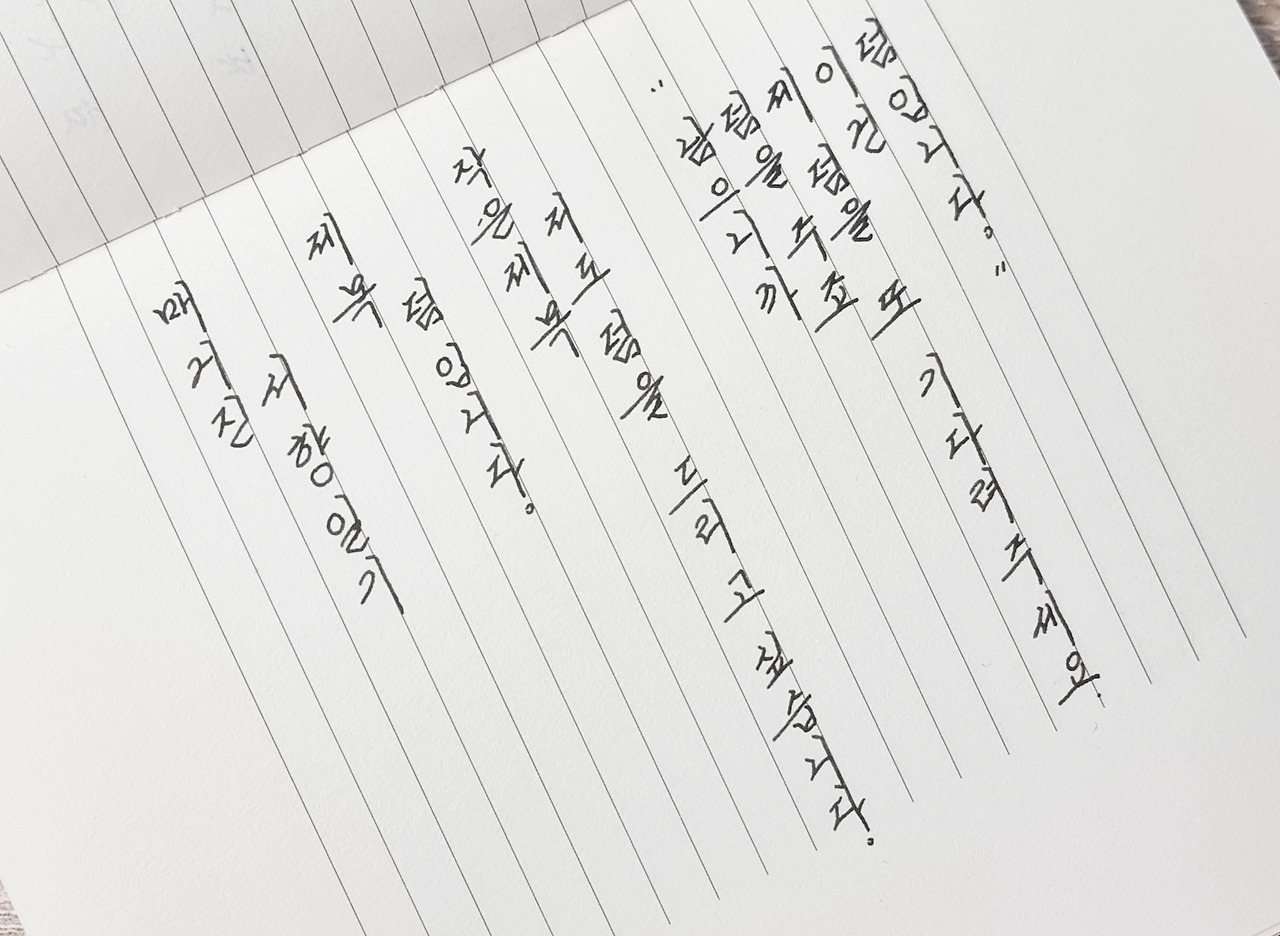 매거진
서향일기
제목
덤입니다.
작은제목
저도 덤을 드리고 싶습니다.
"남으니까
덤을 주죠
제 덤을 또 기다려주세요.
이건
덤입니다."